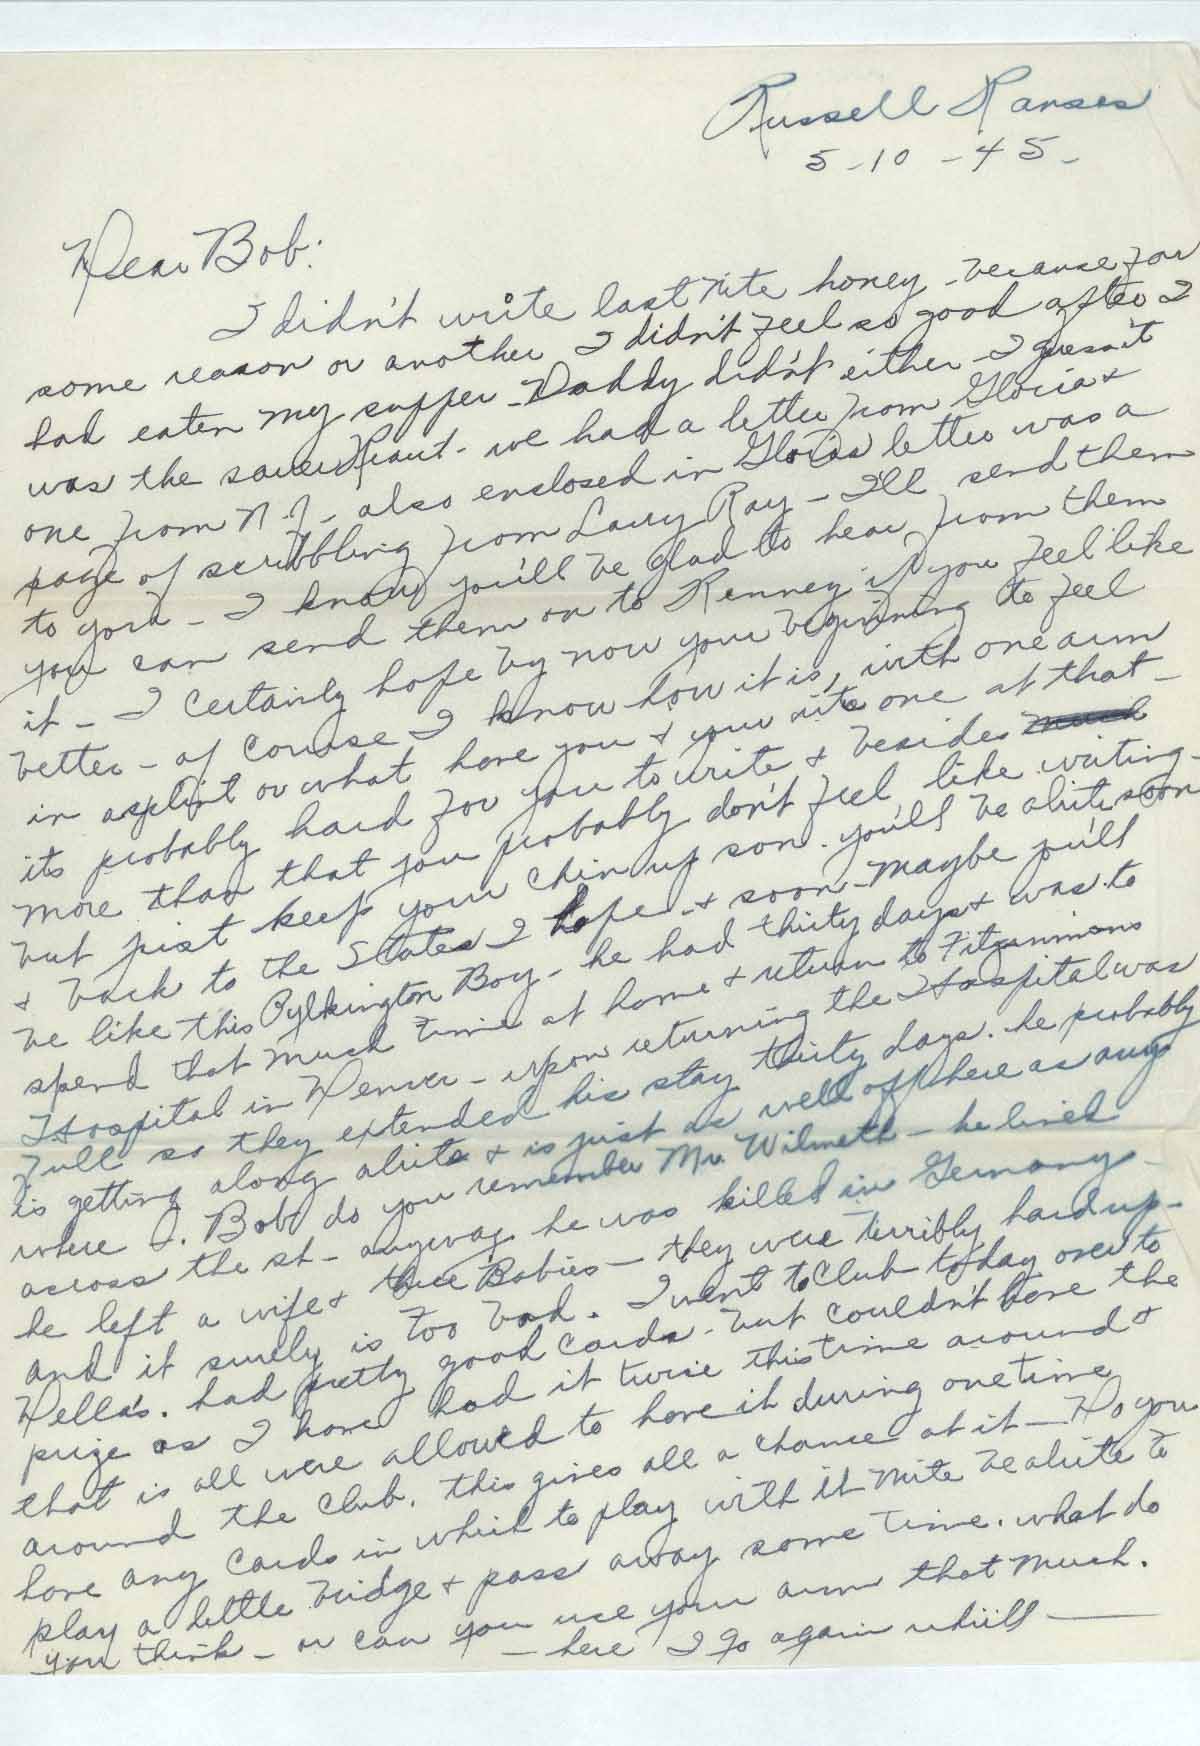 Russell Kansas
5-10-45-
Dear Bob:
I didn't write last nite honey - because for
some reason or another I didn't feel so good after I
had eaten my supper - Daddy didn't either - I guess it
was the sauer Kraut - we had a letter from Gloria &
one from N.J. - also enclosed in Glorias letter was a
page of scribbling from Larry Ray - I'll send them
to you - I know you'll be glad to hear from them
you can send them on to Kenney if you feel like
it - I certainly hope by now your beginning to feel
better - of course I know how it is, with one arm
in a splint or what have you & your rite one at that -
its probably hard for you to write & besides much
more than that you probably don't feel like writing -
but just keep your chin up son. you'll be alrite soon
& back to the States I hope - & soon - maybe you'll
be like this Pylkington Boy - he had thirty days & was to
spend that much time at home & return to Fitzsimmons
Hospital in Denver - upon returning the Hospital was
full so they extended his stay thirty days. he probably
is getting along alrite & is just as well off here as any
where. Bob do you remember Mr. Wilmeth - he lived
across the st - anyway he was killed in Germany -
he left a wife & three Babies - they were terribly hard up -
and it surely is too bad. I went to Club today over to
Della's. had pretty good cards - but couldn't have the
prize as I have had it twice this time around &
that is all were allowed to have it during one time
around the Club. this gives all a chance at it - Do you
have any cards in which to play with it mite be alrite to
play a little bridge & pass away some time. what do
you think - or can you use your arm that much.
- here I go again whill -